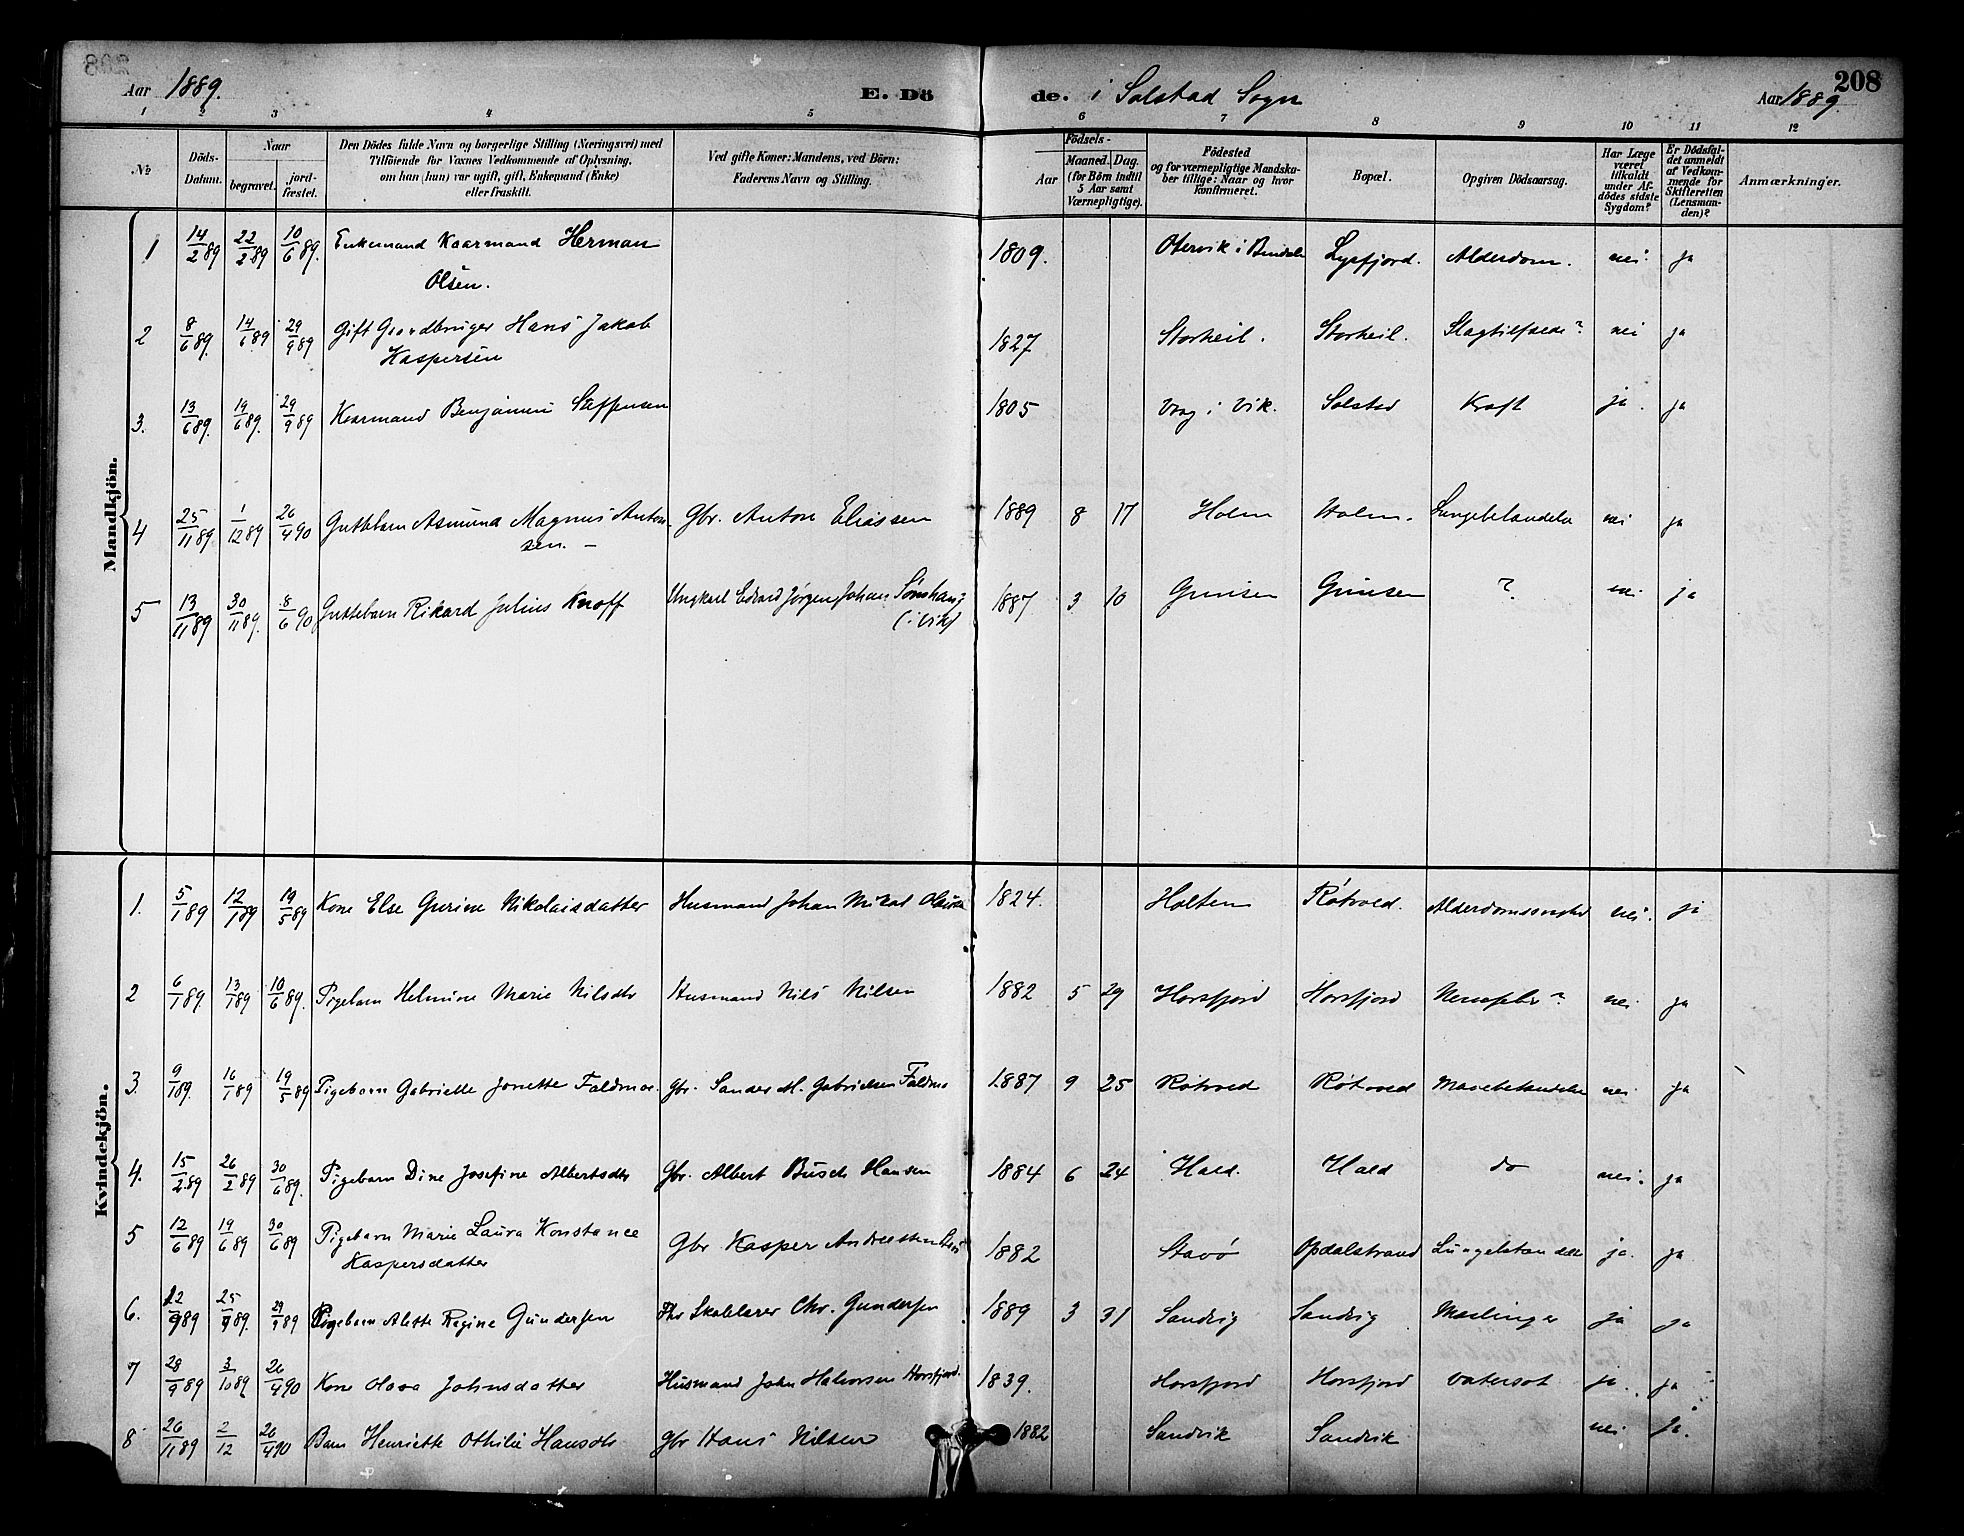 208
Aar 1889.
E. Dö de. i Solstad Sogn
Aar 1889
1 2 3 4 5 6 7 8 9 10 11 12
№
Döds-Datum.
Naar
begravet.
jord-fæstet.
Den Dödes fulde Navn og borgerlige Stilling (Næringsvei) med
Tilföiende for Voxnes Vedkommende af Oplysning,
om han (hun) var ugift, gift, Enkemand (Enke)
eller fraskilt.
Ved gifte Koner: Mandens, ved Börn:
Faderens Navn og Stilling.
Födsels-
Aar
Maaned. Dag.
(for Börn indtil
5 Aar samt
Værnepligtige).
Födested
og for værnepligtige Mandska-
ber tillige: Naar og hvor
konfirmeret.
Bopæl.
Opgiven Dödsaarsag.
Har Læge
været
tilkaldt
under Af-
dödes sidste
Sygdom?
Er Dödsfal-
det anmeldt
af Vedkom-
mende for
Skifteretten
(Lensman-
den)?
Anmærkninger.
Mandkjön.
1 14/2 89 22/2 89 10/6 89. Enkemand Kaarmand Herman 1809. Otervik i Bindalen Lysfjord. Alderdom. nei. ja
Olsen.
2 8/6 89. 14/6 89 29/9 89 Gift Gaardbruger Hans Jakob 1827 Storheil. Storheil. Slagtilfælde? nei ja
Kaspersen
3. 13/6 89. 19/6 89. 29/9 89 Kaarmand Benjamin Steffensen 1805 Vaag i Vik. Solstad Kræft ja. ja
4 25/11 89 1/12 89 26/4 90 Guttebarn Asmund Magnus Anton- Gbr. Anton Eliassen 1889 8 17 Holm Holm. Lungebetændelse nei ja
sen. –
5 13/11 89 30/11 89. 8/6 90 Guttebarn Rikard Julius Knoff Ungkarl Edvard Jørgen Johan 1887 3 10 Grimsen Grimsen ? nei ja
(i Vik)
Kvindekjön.
1. 5/1 89 12/1 89 19/5 89 Kone Else Gurine Nikolaisdatter Husmand Johan Mikal Olsen 1824. Holten Røtvold. Alderdomssvaghed nei. ja
2 6/1 89. 13/1 89 10/6 89. Pigebarn Helmine Marie Nilsdtr Husmand Nils Nilsen 1882 5 29 Horsfjord Horsfjord Nervefeber? nei ja
3. 9/1 89. 16/1 89 19/5 89 Pigebarn Gabrielle Jonette Faldmo. Gbr. Sander M. Gabrielsen Faldmo 1887 9 25 Røtvold Røtvold Mavebetændelse nei ja
4. 15/2 89 26/2 89 30/6 89. Pigebarn Dine Josefine Albertsdtr Gbr. Albert Busch Hansen 1884 6 24 Hald. Hald do nei. ja
5 12/6 89 19/6 89 30/6 89 Pigebarn Marie Laura Konstance Gbr Kasper Andreassen 1882 Stavø Opdalstrand Lungebetændelse ja. ja
Kaspersdatter
6. 12/9 89 25/9 89. 29/9 89 Pigebarn Alette Regine Gundersen Fhv Skolelærer Chr. Gundersen 1889 3 31 Sandvig Sandvig Meslinger ja ja
7 28/9 89 3/10 89 26/4 90 Kone Olava Johnsdatter Husmand John Halvorsen Horsfjord. 1839. Horsfjord Horsfjord Vatersot ja. ja
8 26/11 89 2/12 26/4 90 Barn Henriette Othilie Hansdtr Gbr Hans Nilsen 1882 Sandvik Sandvik nei ja.